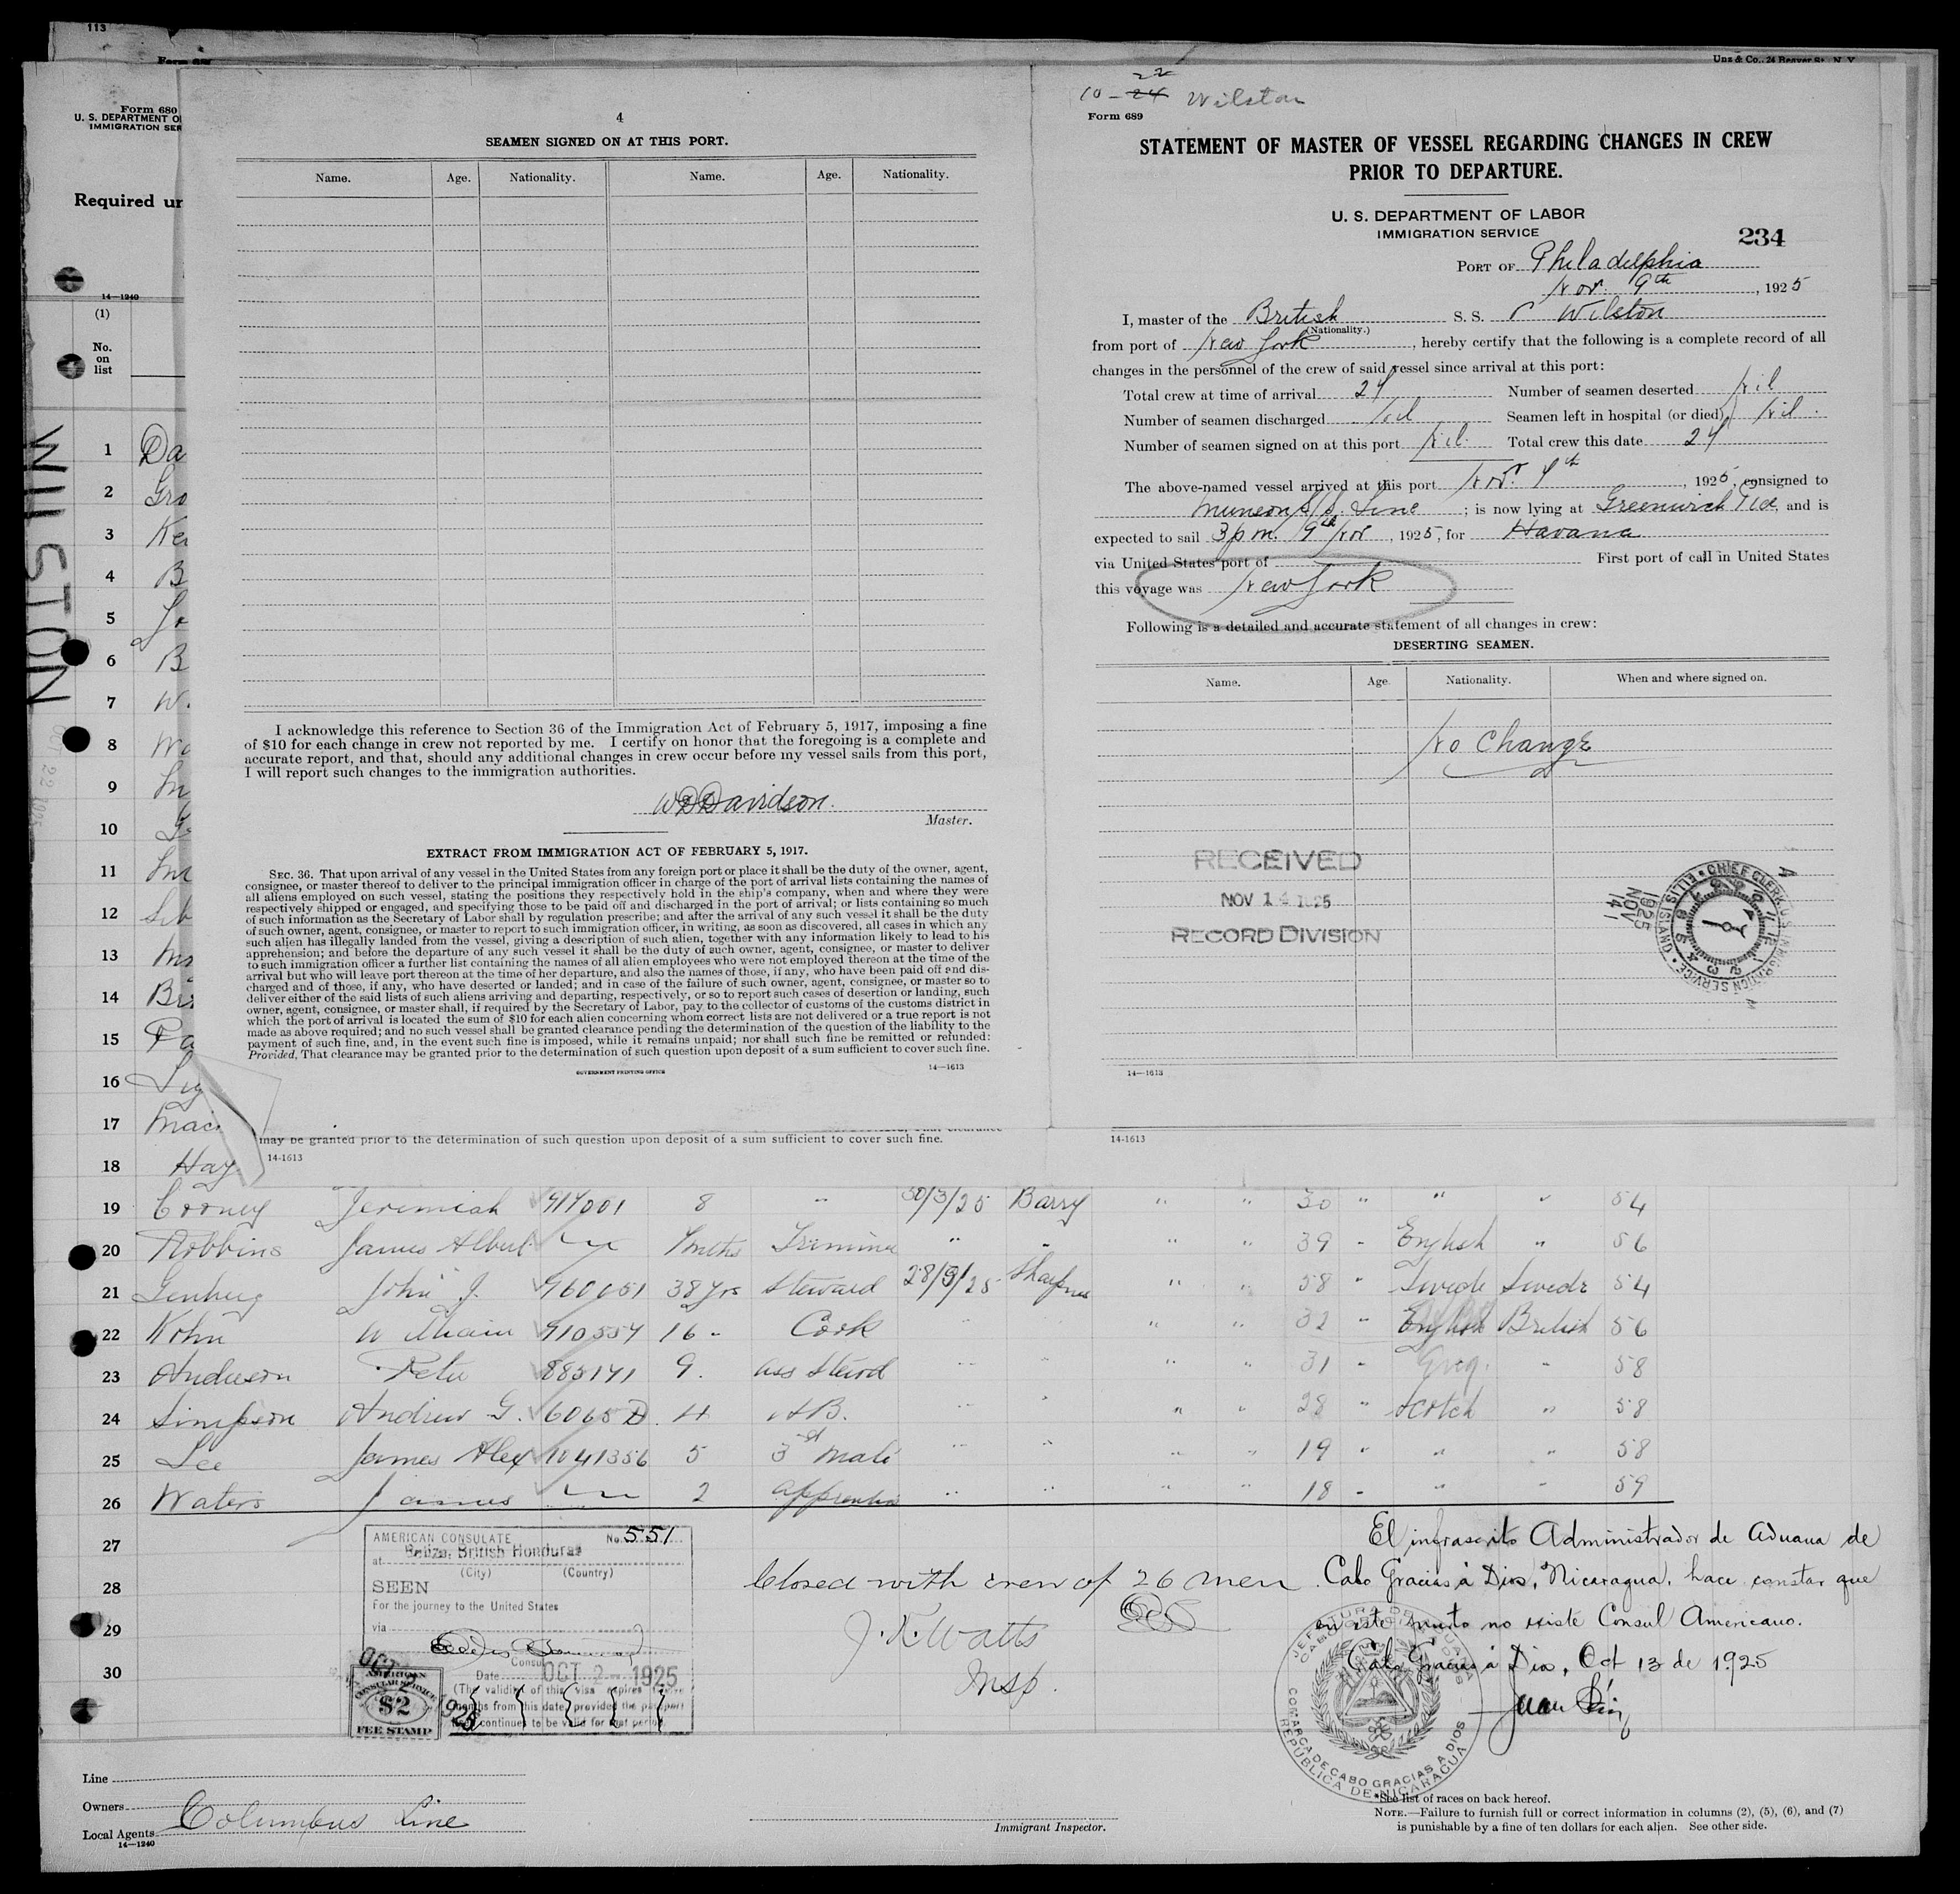 113
Form 680
Unz & Co., 24 Beaver St., N. Y.
Form 680
U. S. DEPARTMENT O
IMMIGRATION SER
Required un
14—1240
(1)
No.
on
list
WILSTON
1 Da
2 Gro
3 Ke
4 B
5 Jo
6 B
7 W
8 Wa
9 In
10
11
12 Sib
13
14 Bir
15 Pa
16
17 Mac
18 Hay
4
SEAMEN SIGNED ON AT THIS PORT.
Name. Age. Nationality. Name. Age. Nationality.
I acknowledge this reference to Section 36 of the Immigration Act of February 5, 1917, imposing a fine
of $10 for each change in crew not reported by me. I certify on honor that the foregoing is a complete and
accurate report, and that, should any additional changes in crew occur before my vessel sails from this port,
I will report such changes to the immigration authorities.
W D Davidson.
Master.
EXTRACT FROM IMMIGRATION ACT OF FEBRUARY 5, 1917.
SEC. 36. That upon arrival of any vessel in the United States from any foreign port or place it shall be the duty of the owner, agent,
consignee, or master thereof to deliver to the principal immigration officer in charge of the port of arrival lists containing the names of
all aliens employed on such vessel, stating the positions they respectively hold in the ship's company, when and where they were
respectively shipped or engaged, and specifying those to be paid off and discharged in the port of arrival; or lists containing so much
of such information as the Secretary of Labor shall by regulation prescribe; and after the arrival of any such vessel it shall be the duty
of such owner, agent, consignee, or master to report to such immigration officer, in writing, as soon as discovered, all cases in which any
such alien has illegally landed from the vessel, giving a description of such alien, together with any information likely to lead to his
apprehension; and before the departure of any such vessel it shall be the duty of such owner, agent, consignee, or master to deliver
to such immigration officer a further list containing the names of all alien employees who were not employed thereon at the time of the
arrival but who will leave port thereon at the time of her departure, and also the names of those, if any, who have been paid off and dis-
charged and of those, if any, who have deserted or landed; and in case of the failure of such owner, agent, consignee, or master so to
deliver either of the said lists of such aliens arriving and departing, respectively, or so to report such cases of desertion or landing, such
owner, agent, consignee, or master shall, if required by the Secretary of Labor, pay to the collector of customs of the customs district in
which the port of arrival is located the sum of $10 for each alien concerning whom correct lists are not delivered or a true report is not
made as above required; and no such vessel shall be granted clearance pending the determination of the question of the liability to the
payment of such fine, and, in the event such fine is imposed, while it remains unpaid; nor shall such fine be remitted or refunded:
Provided, That clearance may be granted prior to the determination of such question upon deposit of a sum sufficient to cover such fine.
GOVERNMENT PRINTING OFFICE
14—1613
may be granted prior to the determination of such question upon deposit of a sum sufficient to cover such fine.
14-1613
22
10 - 24 Wilston
Form 689
STATEMENT OF MASTER OF VESSEL REGARDING CHANGES IN CREW
PRIOR TO DEPARTURE.
U. S. DEPARTMENT OF LABOR
IMMIGRATION SERVICE
234
PORT OF Philadelphia
Nov. 9th, 1925
I, master of the British S. S. Wilston
(Nationality.)
from port of New York, hereby certify that the following is a complete record of all
changes in the personnel of the crew of said vessel since arrival at this port:
Total crew at time of arrival 27 Number of seamen deserted Nil
Number of seamen discharged Nil Seamen left in hospital (or died) Nil.
Number of seamen signed on at this port Nil. Total crew this date 27
The above-named vessel arrived at this port Nov. 7th, 1925, consigned to
Munson S/S. Line; is now lying at Greenwich Pier, and is
expected to sail 3 p m. 9th Nov, 1925, for Havana
via United States port of First port of call in United States
this voyage was New York
Following is a detailed and accurate statement of all changes in crew:
DESERTING SEAMEN.
Name. Age. Nationality. When and where signed on.
No Change
RECEIVED
NOV 14 1925
RECORD DIVISION
CHIEF CLERK, U.S. IMMIGRATION SERVICE • ELLIS ISLAND
1925 NOV 14
14—1613
14-1613
19 Cooney Jeremiah 917001 8 " 30/3/25 Barry " " 30 " " " 54
20 Robbins James Albert 7 mths Trimmer " " " " 39 " English " 56
21 John J. 960651 38 yrs Steward 28/9/25 Sharpness " " 58 " Swede Swede 54
22 Kohn William 910557 16 " Cook " " " " 32 " English British 56
23 Anderson Peter 885171 9 ass Steward " " " " 31 " " 58
24 Simpson Andrew G. 6065D 4 AB. " " " " 28 " Scotch " 58
25 Lee James Alex 1041356 5 3rd Mate " " " " 19 " " " 58
26 Waters James 2 apprentice " " " " 18 " " " 59
27
28
29
30
AMERICAN CONSULATE No. 551
at Belize, British Honduras
(City) (Country)
SEEN
For the journey to the United States
via
Consul
Date OCT 2 - 1925
(The validity of this visa expires twelve
months from this date provided the passport
continues to be valid for that period.)
OCT 2 1925
AMERICAN
CONSULAR SERVICE
$2
FEE STAMP
Closed with crew of 26 men
J. K. Watts
Insp.
El infrascrito Administrador de Aduana de
Cabo Gracias á Dios, Nicaragua, hace constar que
en este puerto no existe Consul Americano.
Cabo Gracias á Dios, Oct 13 de 1925
Juan
COMARCA DE CABO GRACIAS A DIOS
REPUBLICA DE NICARAGUA
Line
Owners
Local Agents Columbus Line
14—1240
Immigrant Inspector.
*See list of races on back hereof.
NOTE.—Failure to furnish full or correct information in columns (2), (5), (6), and (7)
is punishable by a fine of ten dollars for each alien. See other side.